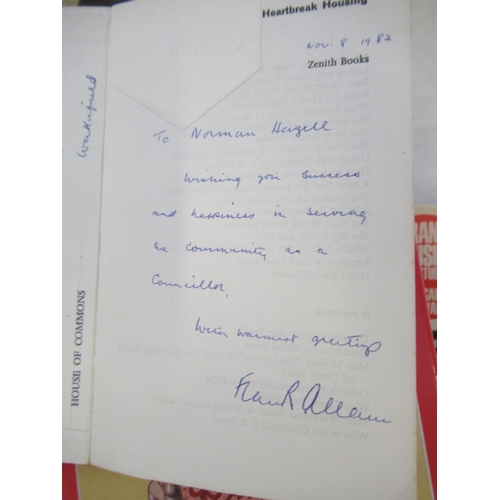 Heartbreak Housing
Nov. 8 1982
Zenith Books
To Norman Hazell
Wishing you success
and happiness in serving
the Community as a
Councillor.
With warmest greetings
Frank Allaun
HOUSE OF COMMONS